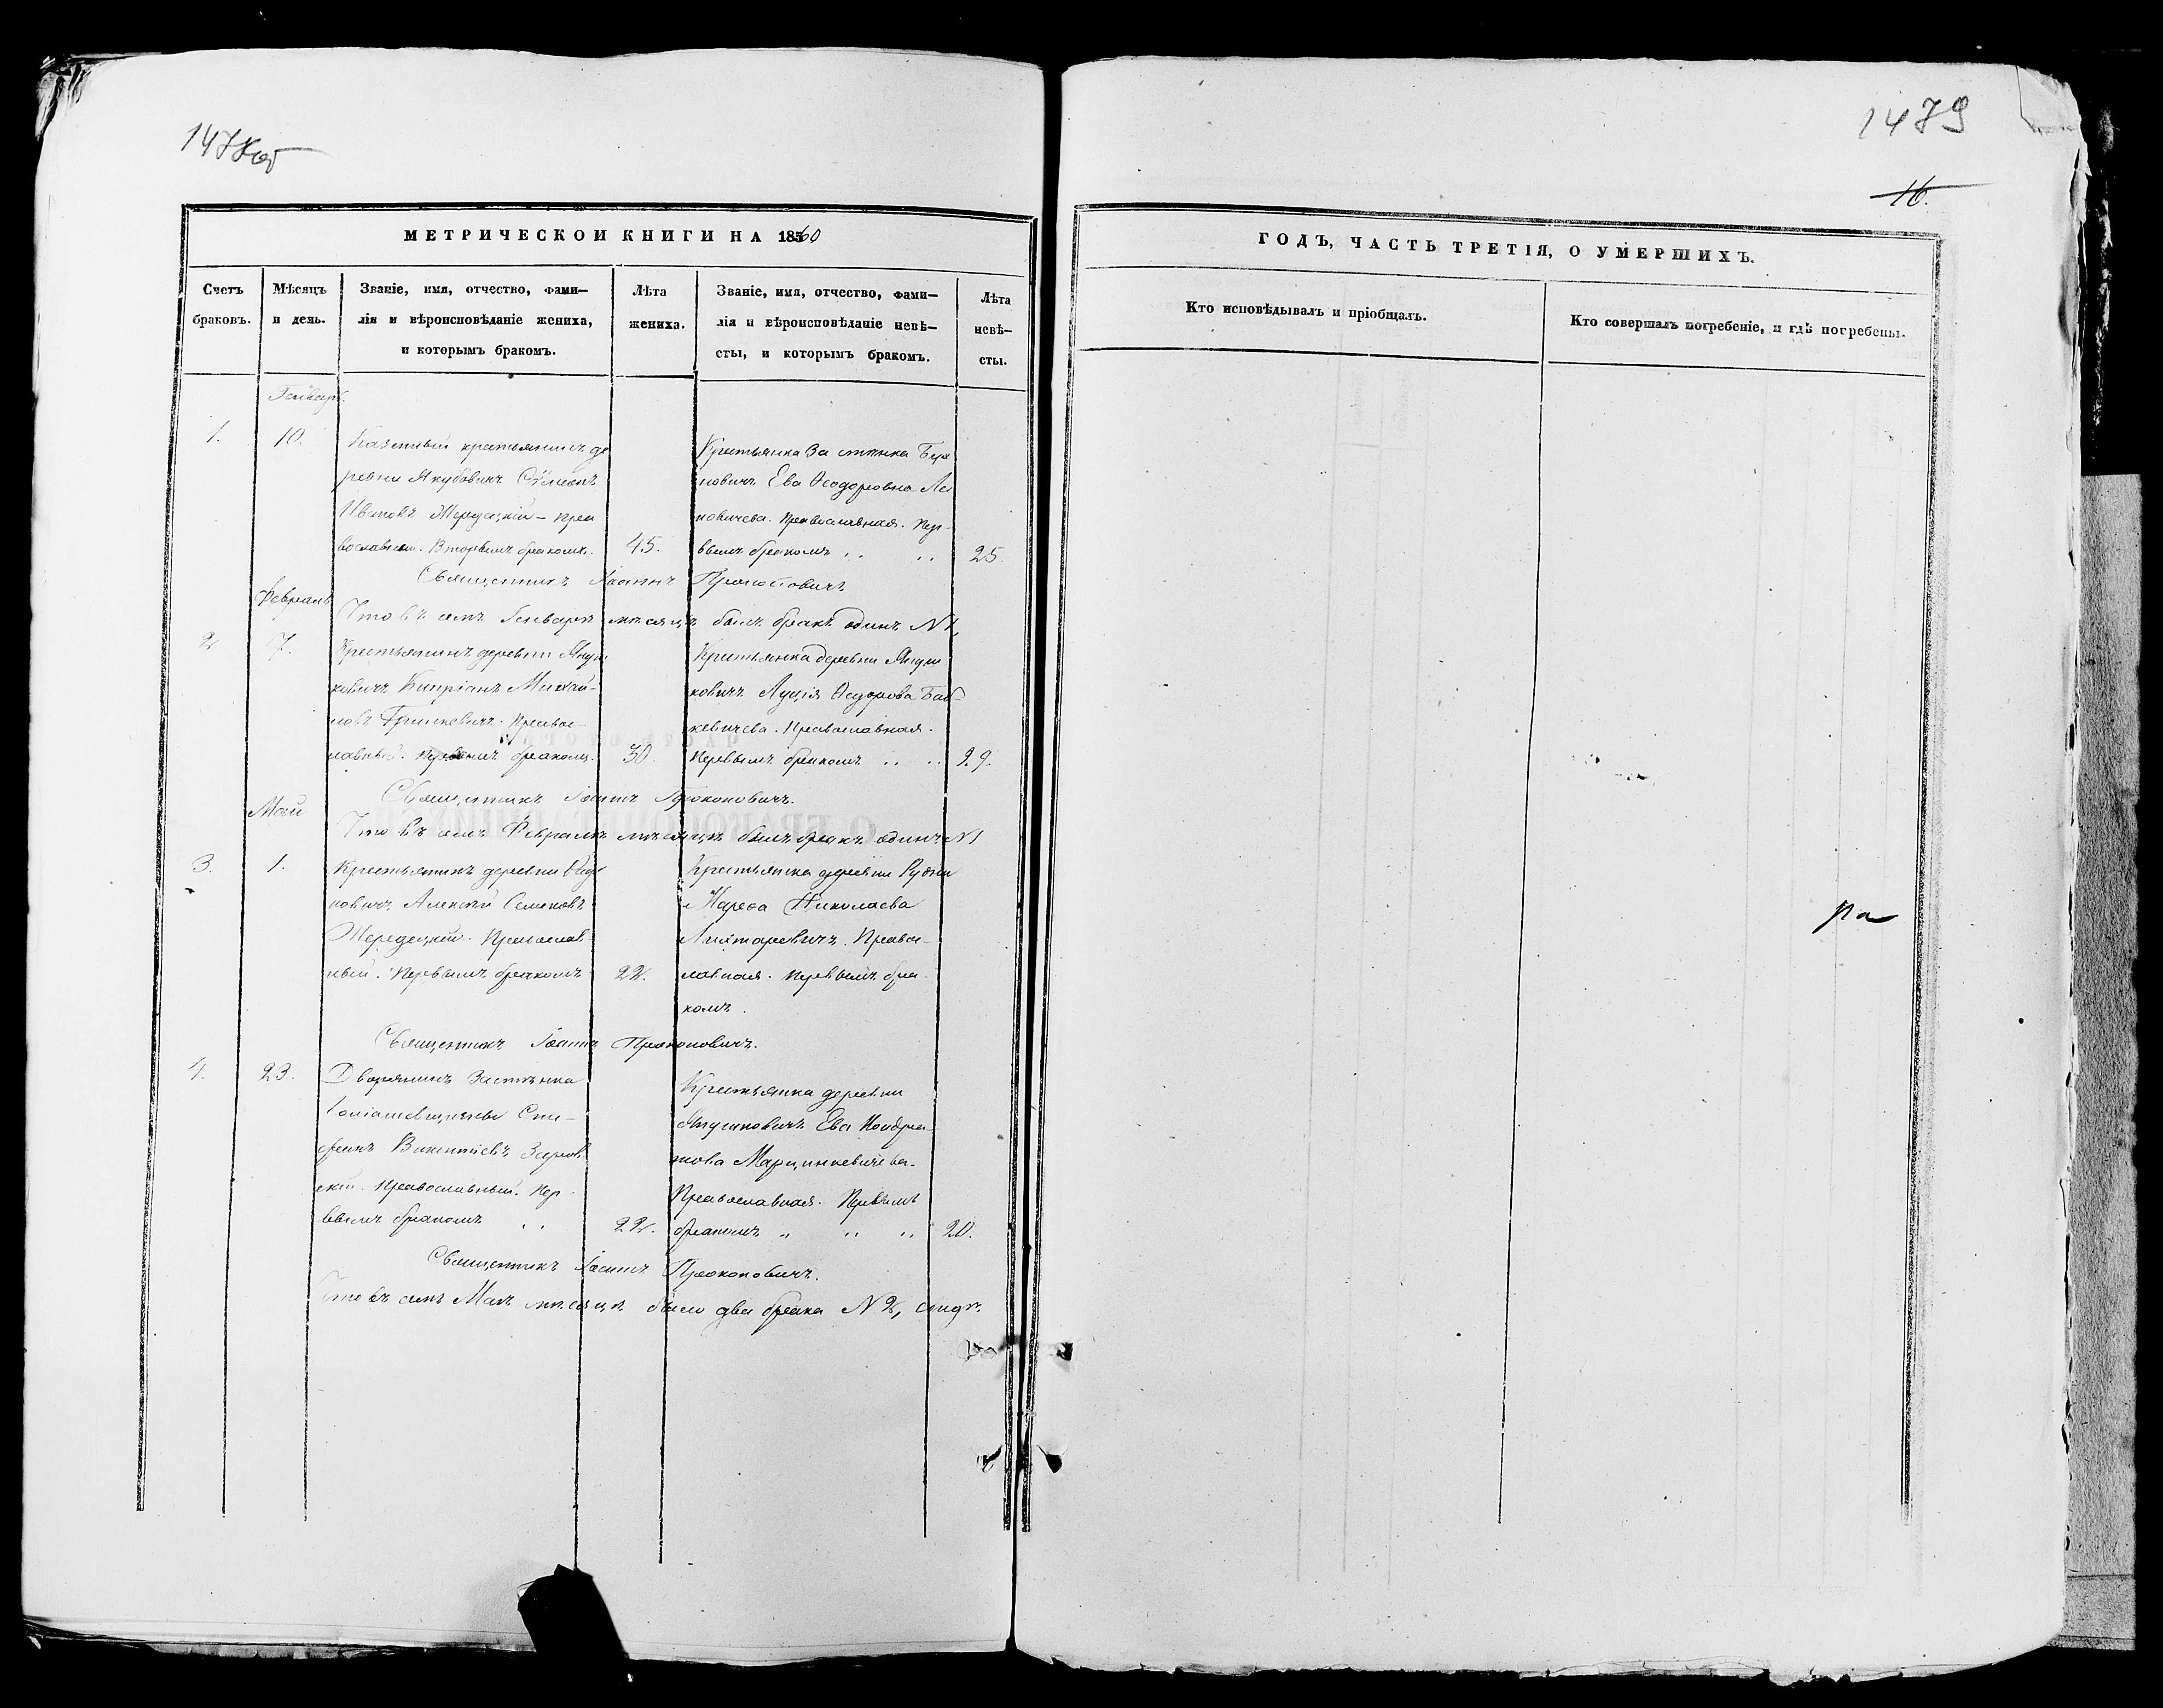 1478 об
МЕТРИЧЕСКОЙ КНИГИ НА 1860
Счетъ браковъ.
Мѣсяцъ и день.
Званіе, имя, отчество, фами-
лія и вѣроисповѣданіе жениха,
и которымъ бракомъ.
Лѣта жениха.
Званіе, имя, отчество, фами-
лія и вѣроисповѣданіе невѣ-
сты, и которымъ бракомъ.
Лѣта невѣ-
сты.
Генварь.
1. 10.
Казенный крестьянинъ де
ревни Якубовичъ Сѵмеонъ
Ивановъ Жередецкій - пра
вославный. Вторымъ бракомъ. 45.
Крестьянка Застѣнка
новичъ Ева Ѳеодоровна
новичева. Православная. Пер-
вымъ бракомъ 25.
Священникъ Іоаннъ Прокоповичъ
Что въ семъ Генварѣ мѣсяцѣ былъ бракъ одинъ N 1,
Февраль
2 7.
Крестьянинъ деревни
ковичъ Кипріанъ Михай-
ловъ Гришкевичъ. Правос-
лавный. Первымъ бракомъ. 30
Крестьянка деревни
ковичъ Луція Ѳедорова Баб-
кевичева. Православная.
Первымъ бракомъ 29.
Священникъ Іоаннъ Прокоповичъ.
Что въ семъ Февралѣ мѣсяцѣ былъ бракъ одинъ N 1
Май
3. 1.
Крестьянинъ деревни
новичъ Алексѣй Семеновъ
Жередецкій. Православ
ный. Первымъ бракомъ 22.
Крестьянка деревни Рудни
Марѳа Николаева
Православ-
лавная. Первымъ бра-
комъ.
Священникъ Іоаннъ Прокоповичъ.
4. 23.
Дворянинъ Застѣнка
Сте-
фанъ Викентіевъ
скій. Православный. Пер-
вымъ бракомъ 22.
Крестьянка деревни
Ева Кондра-
това Марцинкевичева.
Православная. Первымъ
бракомъ 20.
Священникъ Іоаннъ Прокоповичъ.
Что въ семъ Маѣ мѣсяцѣ было два брака N 2,
1479
16.
ГОДЪ, ЧАСТЬ ТРЕТІЯ, О УМЕРШИХЪ.
Кто исповѣдывалъ и пріобщалъ.
Кто совершалъ погребеніе, и гдѣ погребены.
ра